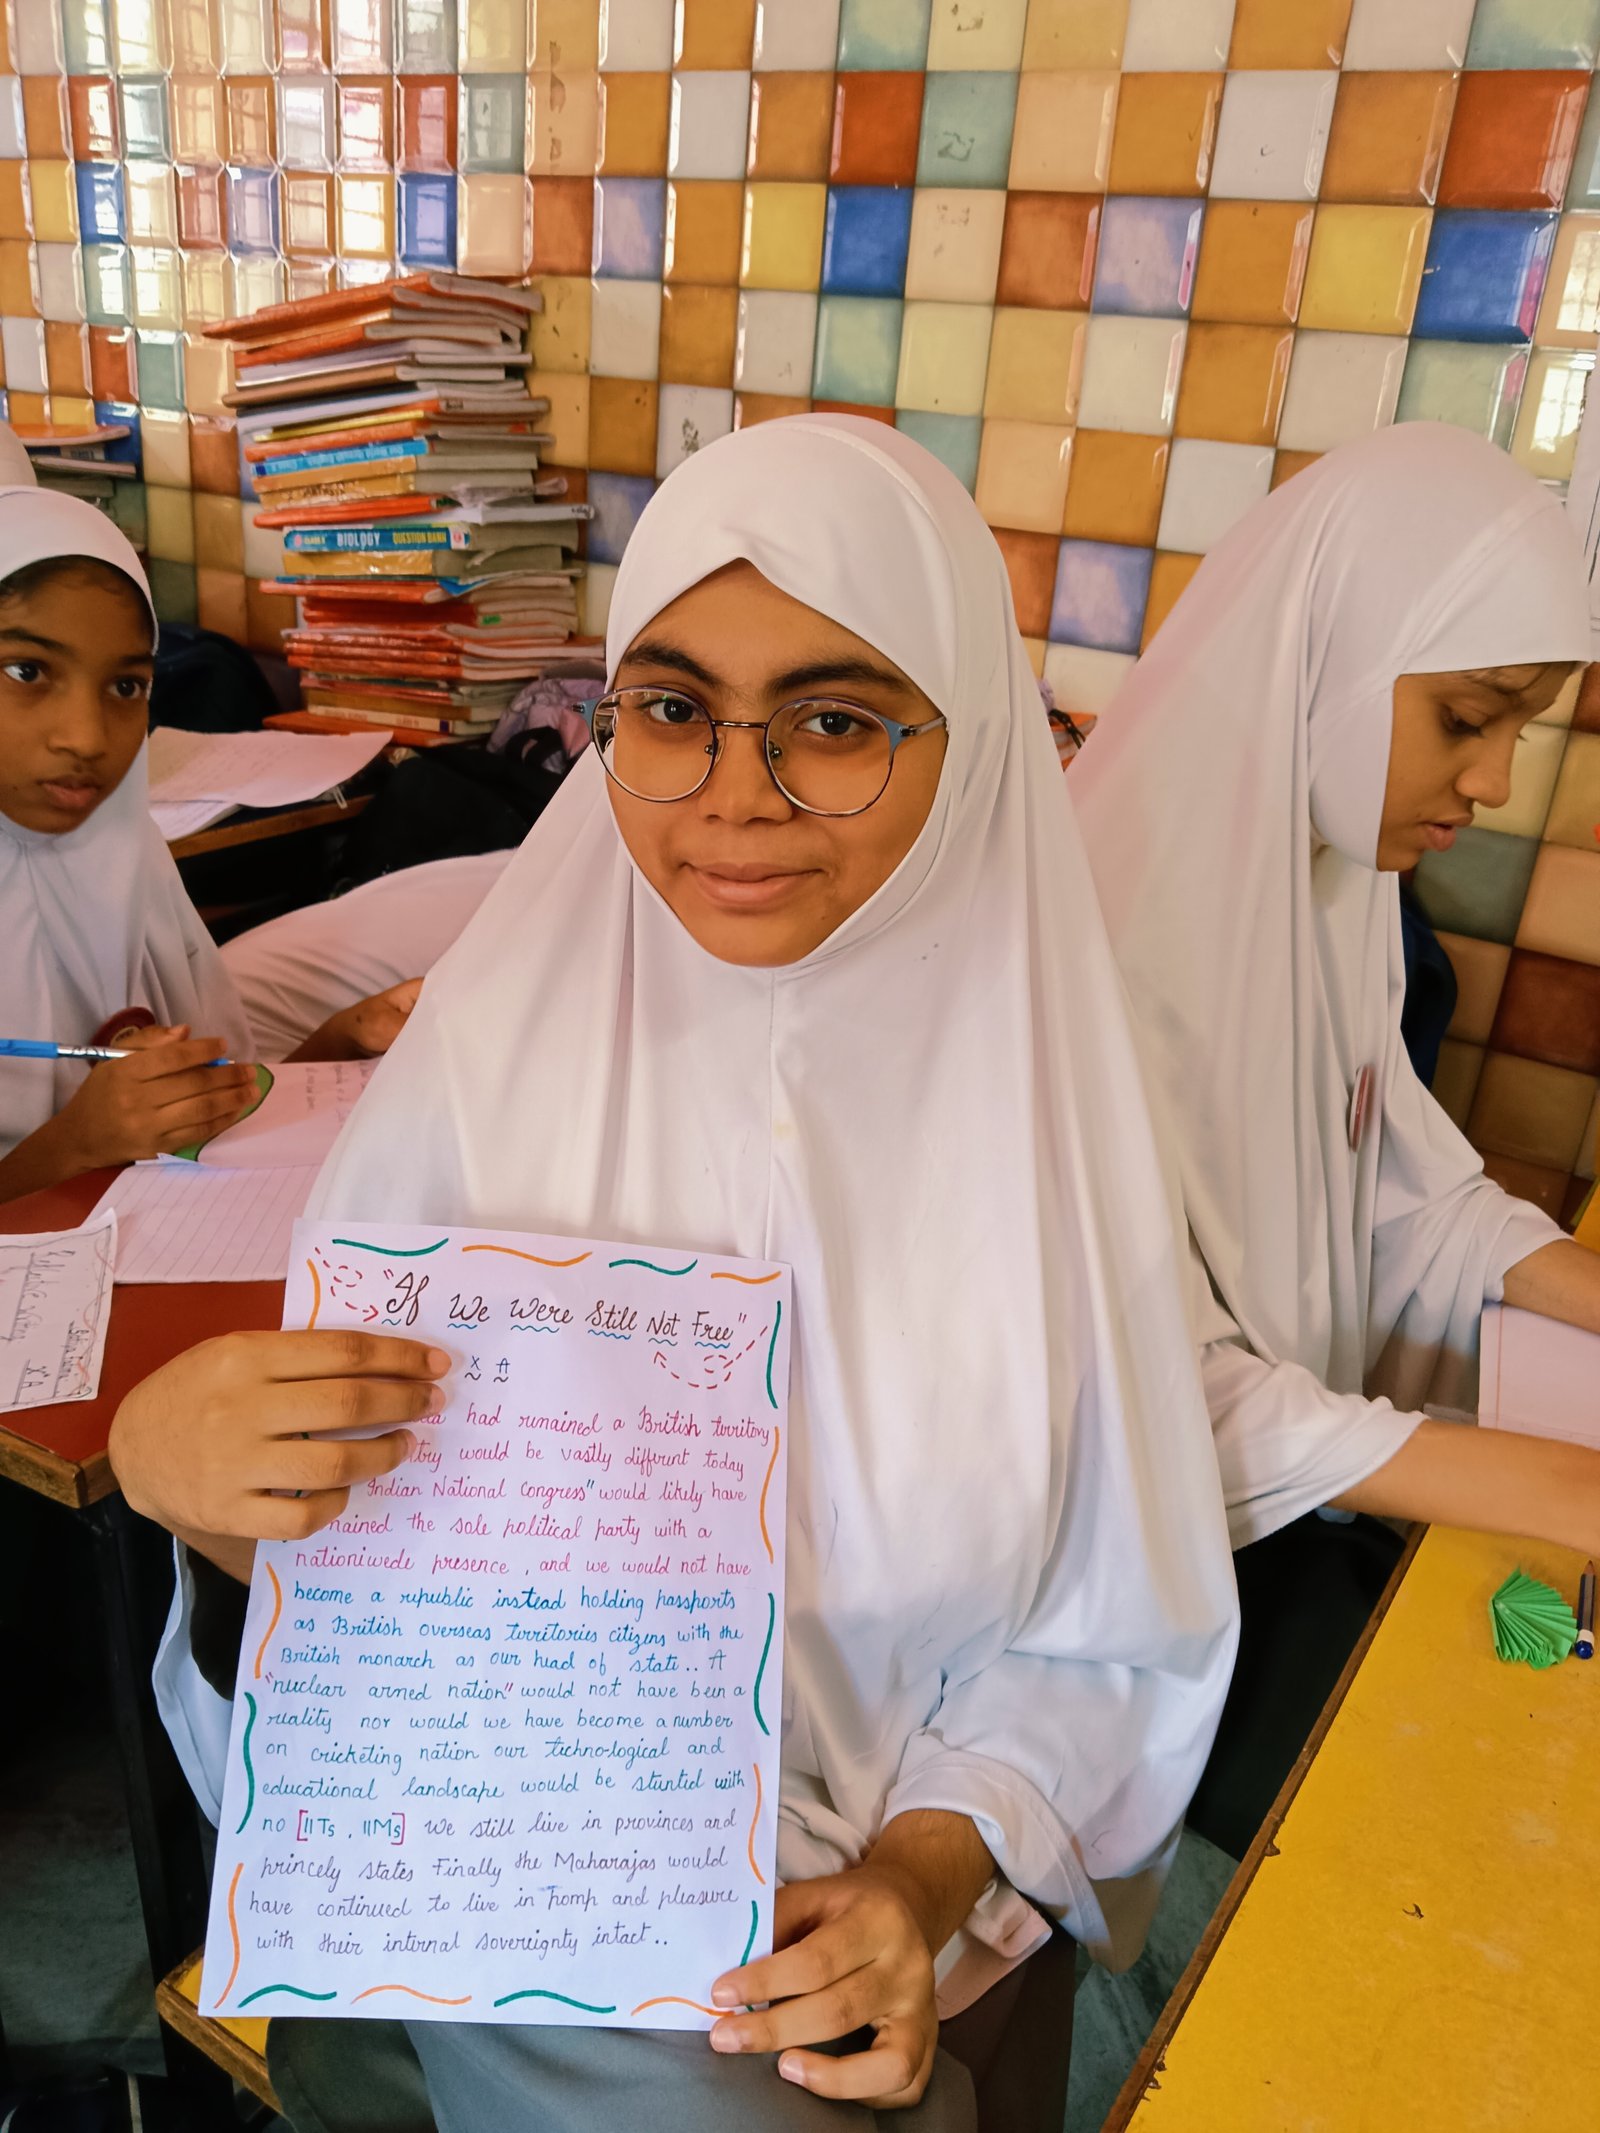 "If We Were Still Not Free"
X A
had remained a British territory
would be vastly different today
Indian National Congress" would likely have
the sole political party with a
nationiwede presence, and we would not have
become a republic instead holding passports
as British overseas territories citizens with the
British monarch as our head of state.. A
"nuclear armed nation" would not have been a
reality nor would we have become a number
on cricketing nation our techno-logical and
educational landscape would be stunted with
no [IITs, IIMs] We still live in provinces and
princely states Finally the Maharajas would
have continued to live in pomp and pleasure
with their internal sovereignty intact..
BIOLOGY QUESTION BANK
X A